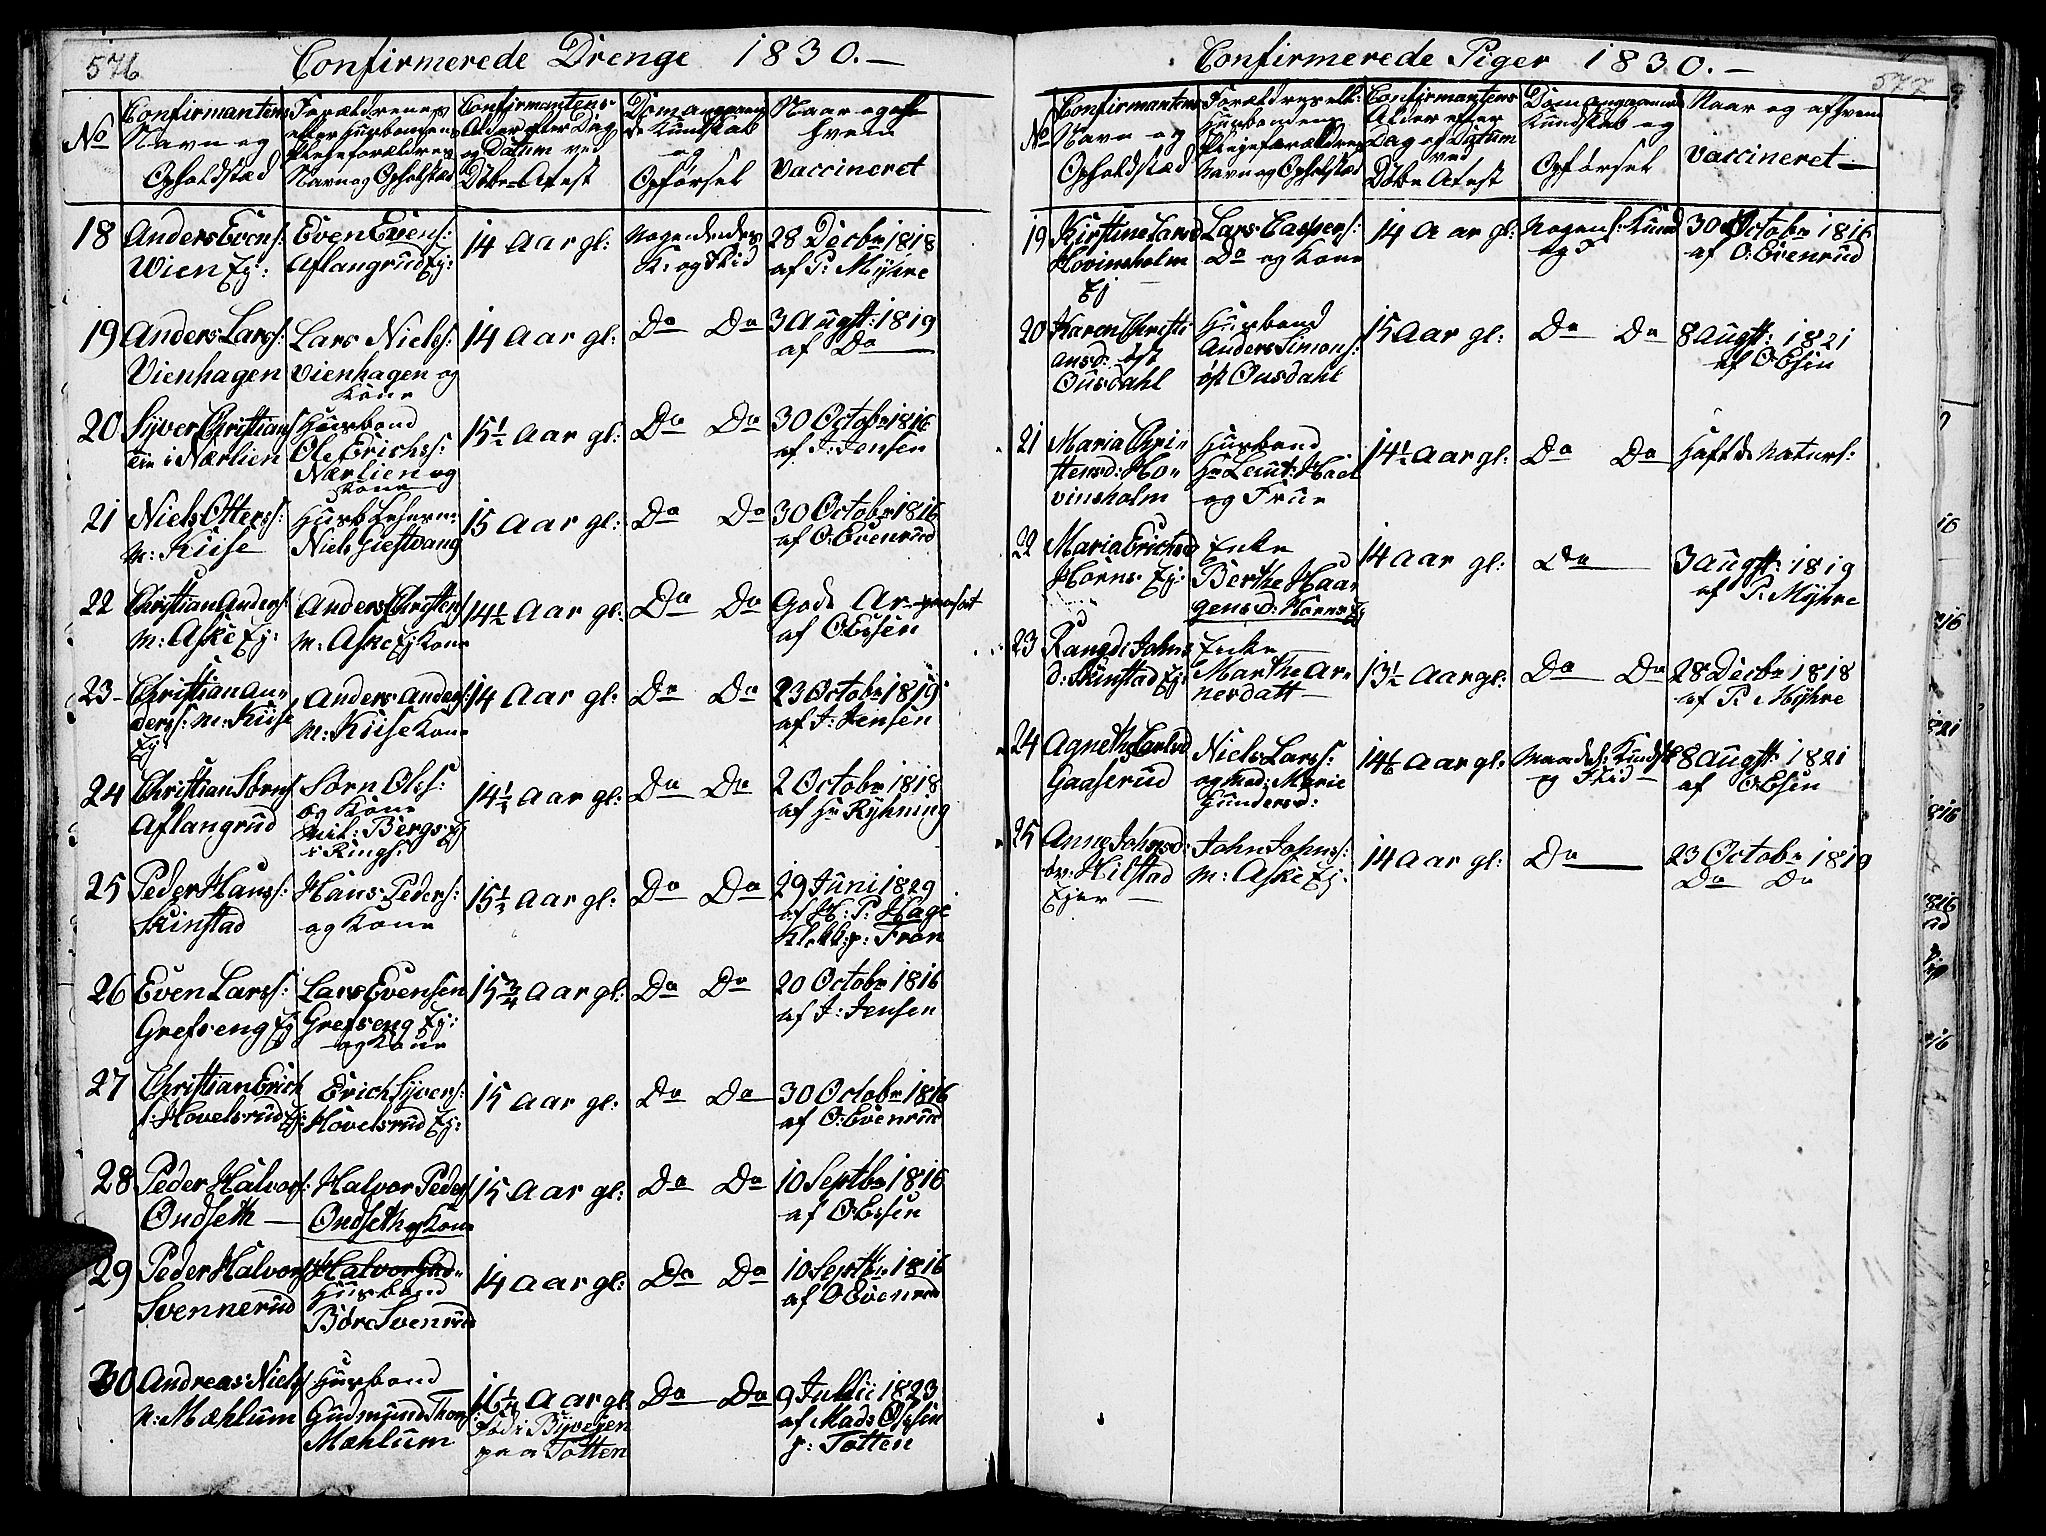 576
Confirmerede Drenge 1830.—
No
Confirmantens
Navn og
Opholdstæd
Forældrenes
eller Husbondens
Plejeforældres
Navn og Opholstæd
Confirmantens
Alder efter Dag
og Datum ved
Døbe Atest
Dom angaaen
de Kundskab
og
Opførsel
Naar og af
hvem
Vaccineret
18
Anders Evens:
Wien Ej:
Even Evens:
Aflangrud Ej:
14 Aar gl:
Nogenledes
K: og Flid
28 Decbr 1818
af P: Myhre
19
Anders Larss:
Vienhagen
Lars Niels:
Vienhagen og
Kone
14 Aar gl:
Do Do
3 Augst: 1819
af Do
20
Syver Christians
Ein i Nærlien
Husbond
Ole Erichss:
Nærlien og
Kone
15½ Aar gl:
Do Do
30 Octobr 1816
af J: Jensen
21
Niels Otterss:
n: Kiise
Husb
Niels
15 Aar gl:
Do Do
30 Octobr 1816
af O: Evenrud
22
Christian Anders:
m: Aske Ej:
Anders Christens
m: Aske Ej Kone
14½ Aar gl:
Do Do
Gode Ar
af O: Essen
23
Christian An-
derss: m: Kiise
Ej
Anders Anders:
m: Kiise Kone
14 Aar gl:
Do Do
23 Octobr 1819
af J: Jensen
24
Christian Sørns
Aflangrud
Sørn Olss:
og Kone
Bergs Ej
Rings:
14½ Aar gl:
Do Do
2 Octobr 1818
af Hr Ryhning
25
Peder Hanss:
Skinstad
Hans Peders:
og Kone
15½ Aar gl:
Do Do
29 Juni 1829
af H: P: Hage
Klokk: p: Fron
26
Even Larss:
Grefseng Ej
Lars Evensen
Grefseng Ej:
og Kone
15¾ Aar gl:
Do Do
20 Octobr 1816
af J: Jensen
27
Christian Erich
s: Hovelsrud Ej:
Erich Syvers:
Hovelsrud Ej:
15 Aar gl:
Do Do
30 Octobr 1816
af O: Evenrud
28
Peder Halvors:
Ondseth —
Halvor Peders
Ondseth og Kone
15 Aar gl:
Do Do
10 Septbr 1816
af O: Essen
29
Peder Halvors
Svennerud
Halvor Gud-
Husbond
Børe Svenrud
14 Aar gl:
Do Do
10 Septbr 1816
af O Evenrud
30
Andreas Niels
n: Mæhlum
Husbond
Gudmund Thors:
Mæhlum
16¼ Aar gl
Fød i Byvejen
paa Totten
Do Do
9 Julii 1823
af Mads Olsen
p: Totten
Confirmerede Piger 1830.—
577
No
Confirmantens
Navn og
Opholdstæd
Forældres ell:
Husbondens
Plejeforældres
Navn og Opholstæd
Confirmantens
Alder efter
Dag og Datum
ved
Døbe Atest
Dom angaaende
Kundskab og
Opførsel
Naar og af hvem
Vaccineret —
19
Kirstine Larsd
Hovinsholm
Ej
Lars Caspers:
Do og Kone
14 Aar gl:
Nogenl: Kund
og F
30 Octobr 1816
af O: Evenrud
20
Karen Christi
ansd: øst
Ousdahl
Husbond
Anders Simons:
øst Ousdahl
15 Aar gl:
Do Do
8 Augst: 1821
af O: Essen
21
Maria Chri-
stensd: Ho-
vinsholm
Husbond
Hr Leut:
og Frue
14½ Aar gl:
Do Do
Haft de Naturl:
22
Maria Erichsd
Horns Ej:
Enke
Berthe Haa-
gensd: Horns Ej
14 Aar gl:
Do
3 Augst: 1819
af P. Myhre
23
Rangdi Johns
d: Skinstad Ej:
Enke
Marthe Ar-
nesdatt —
13½ Aar gl:
Do Do
28 Decbr 1818
af P. Myhre
24
Agnethe Larsd
Gaaserud
Niels Larss:
og Mad: Marie
Gundersd:
14½ Aar gl:
Maadel: Kundsk
og Flid —
8 Augst: 1821
af O: Essen
25
Anne Johnsd:
øv: Hilstad
Ejer —
John Johns:
m: Aske Ej:
14 Aar gl:
Do
23 Octobr 1819
Do Do